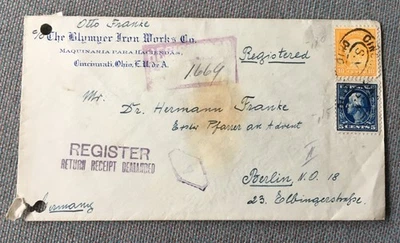 Otto Franke
c/o The Blymyer Iron Works Co.
MAQUINARIA PARA HACIENDAS,
Cincinnati, Ohio, E.U. de A.
Registered
1669
Mr.
Dr. Hermann Franke
Erster Pfarrer an Advent
Berlin N.O. 18
23. Elbingerstraße.
REGISTER
RETURN RECEIPT DEMANDED
Germany
5 CENTS 5